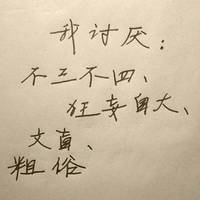 我讨厌：
不三不四、
狂妄自大、
文盲、
粗俗